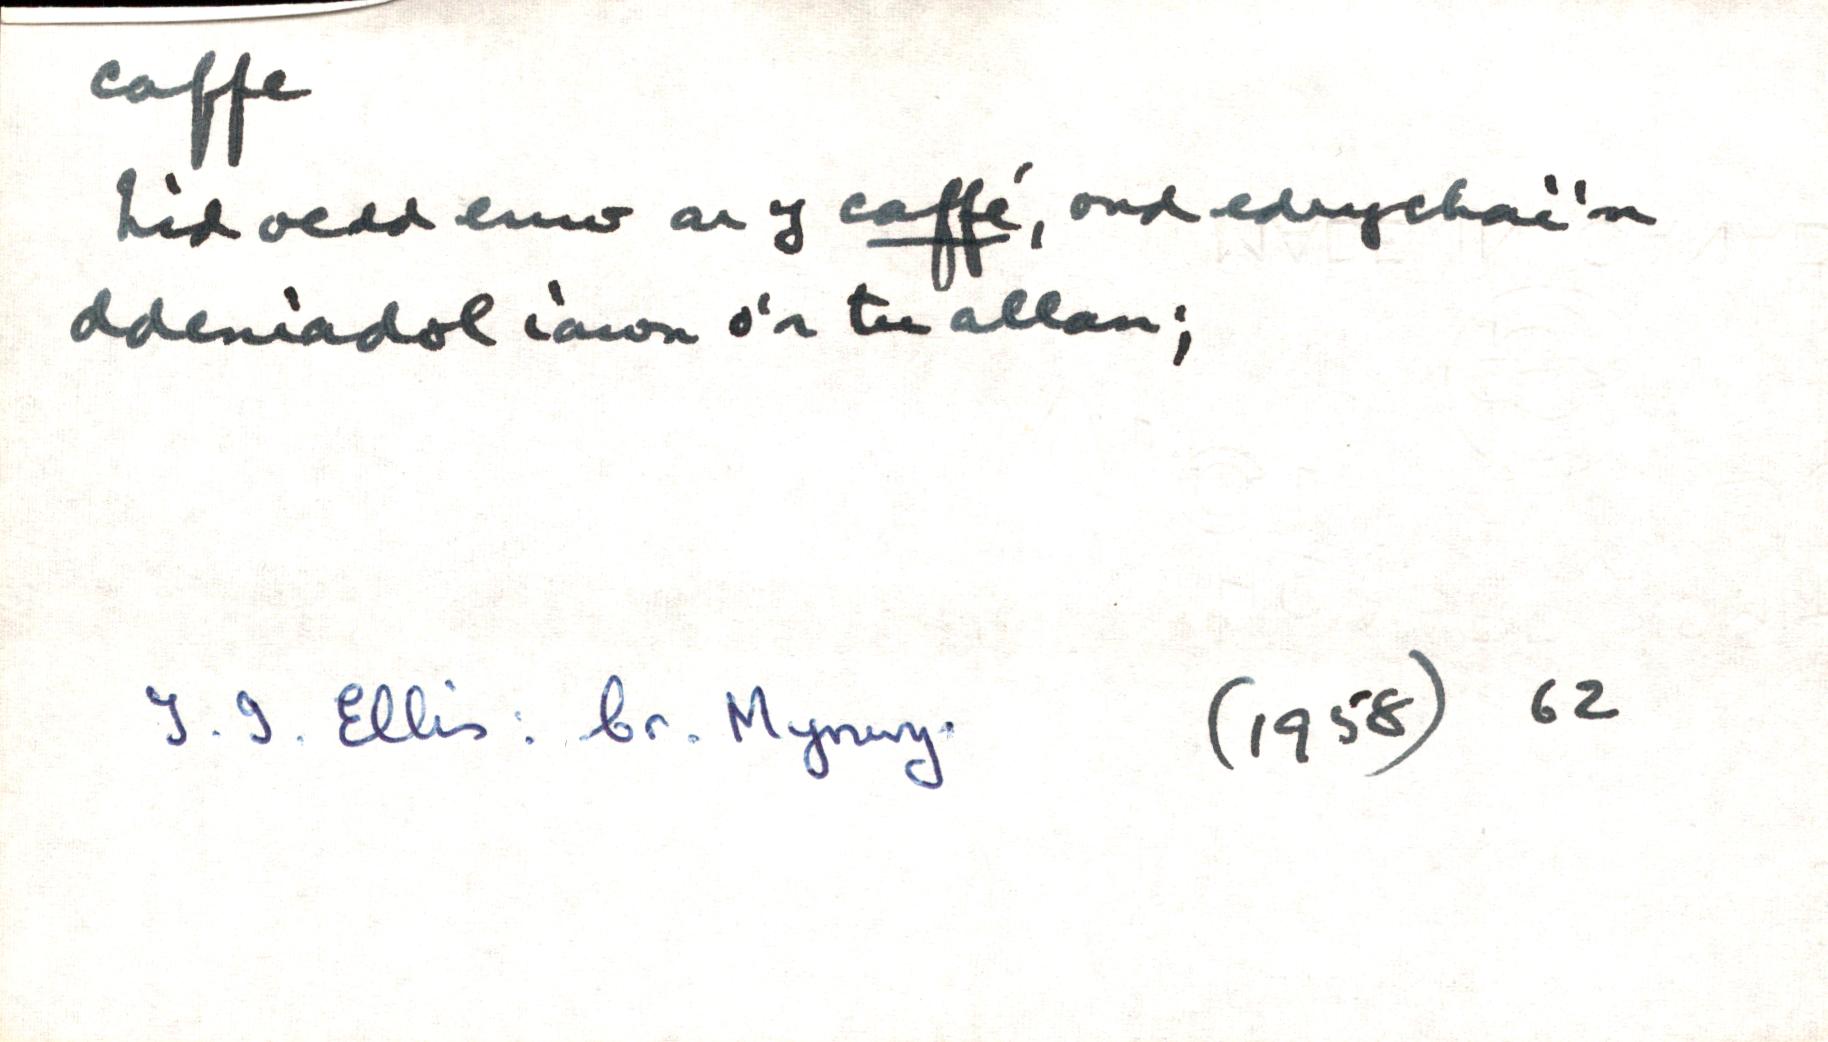 caffe
Nid oedd enw ar y caffé, ond edrychai'n
ddeniadol iawn o'r tu allan;
T. I. Ellis: Cr. Mynwy. (1958) 62